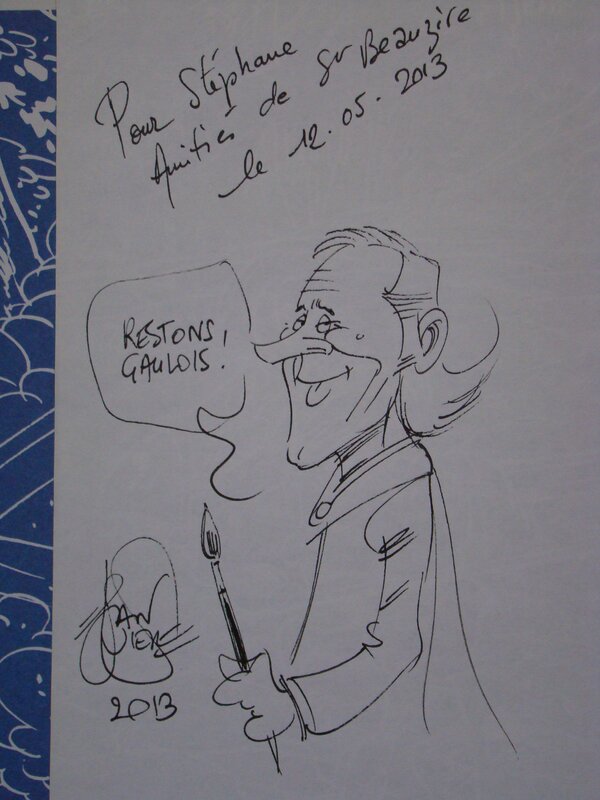 Pour Stéphane
Amitiés de St Beauzire
le 12.05.2013
RESTONS,
GAULOIS.
2013